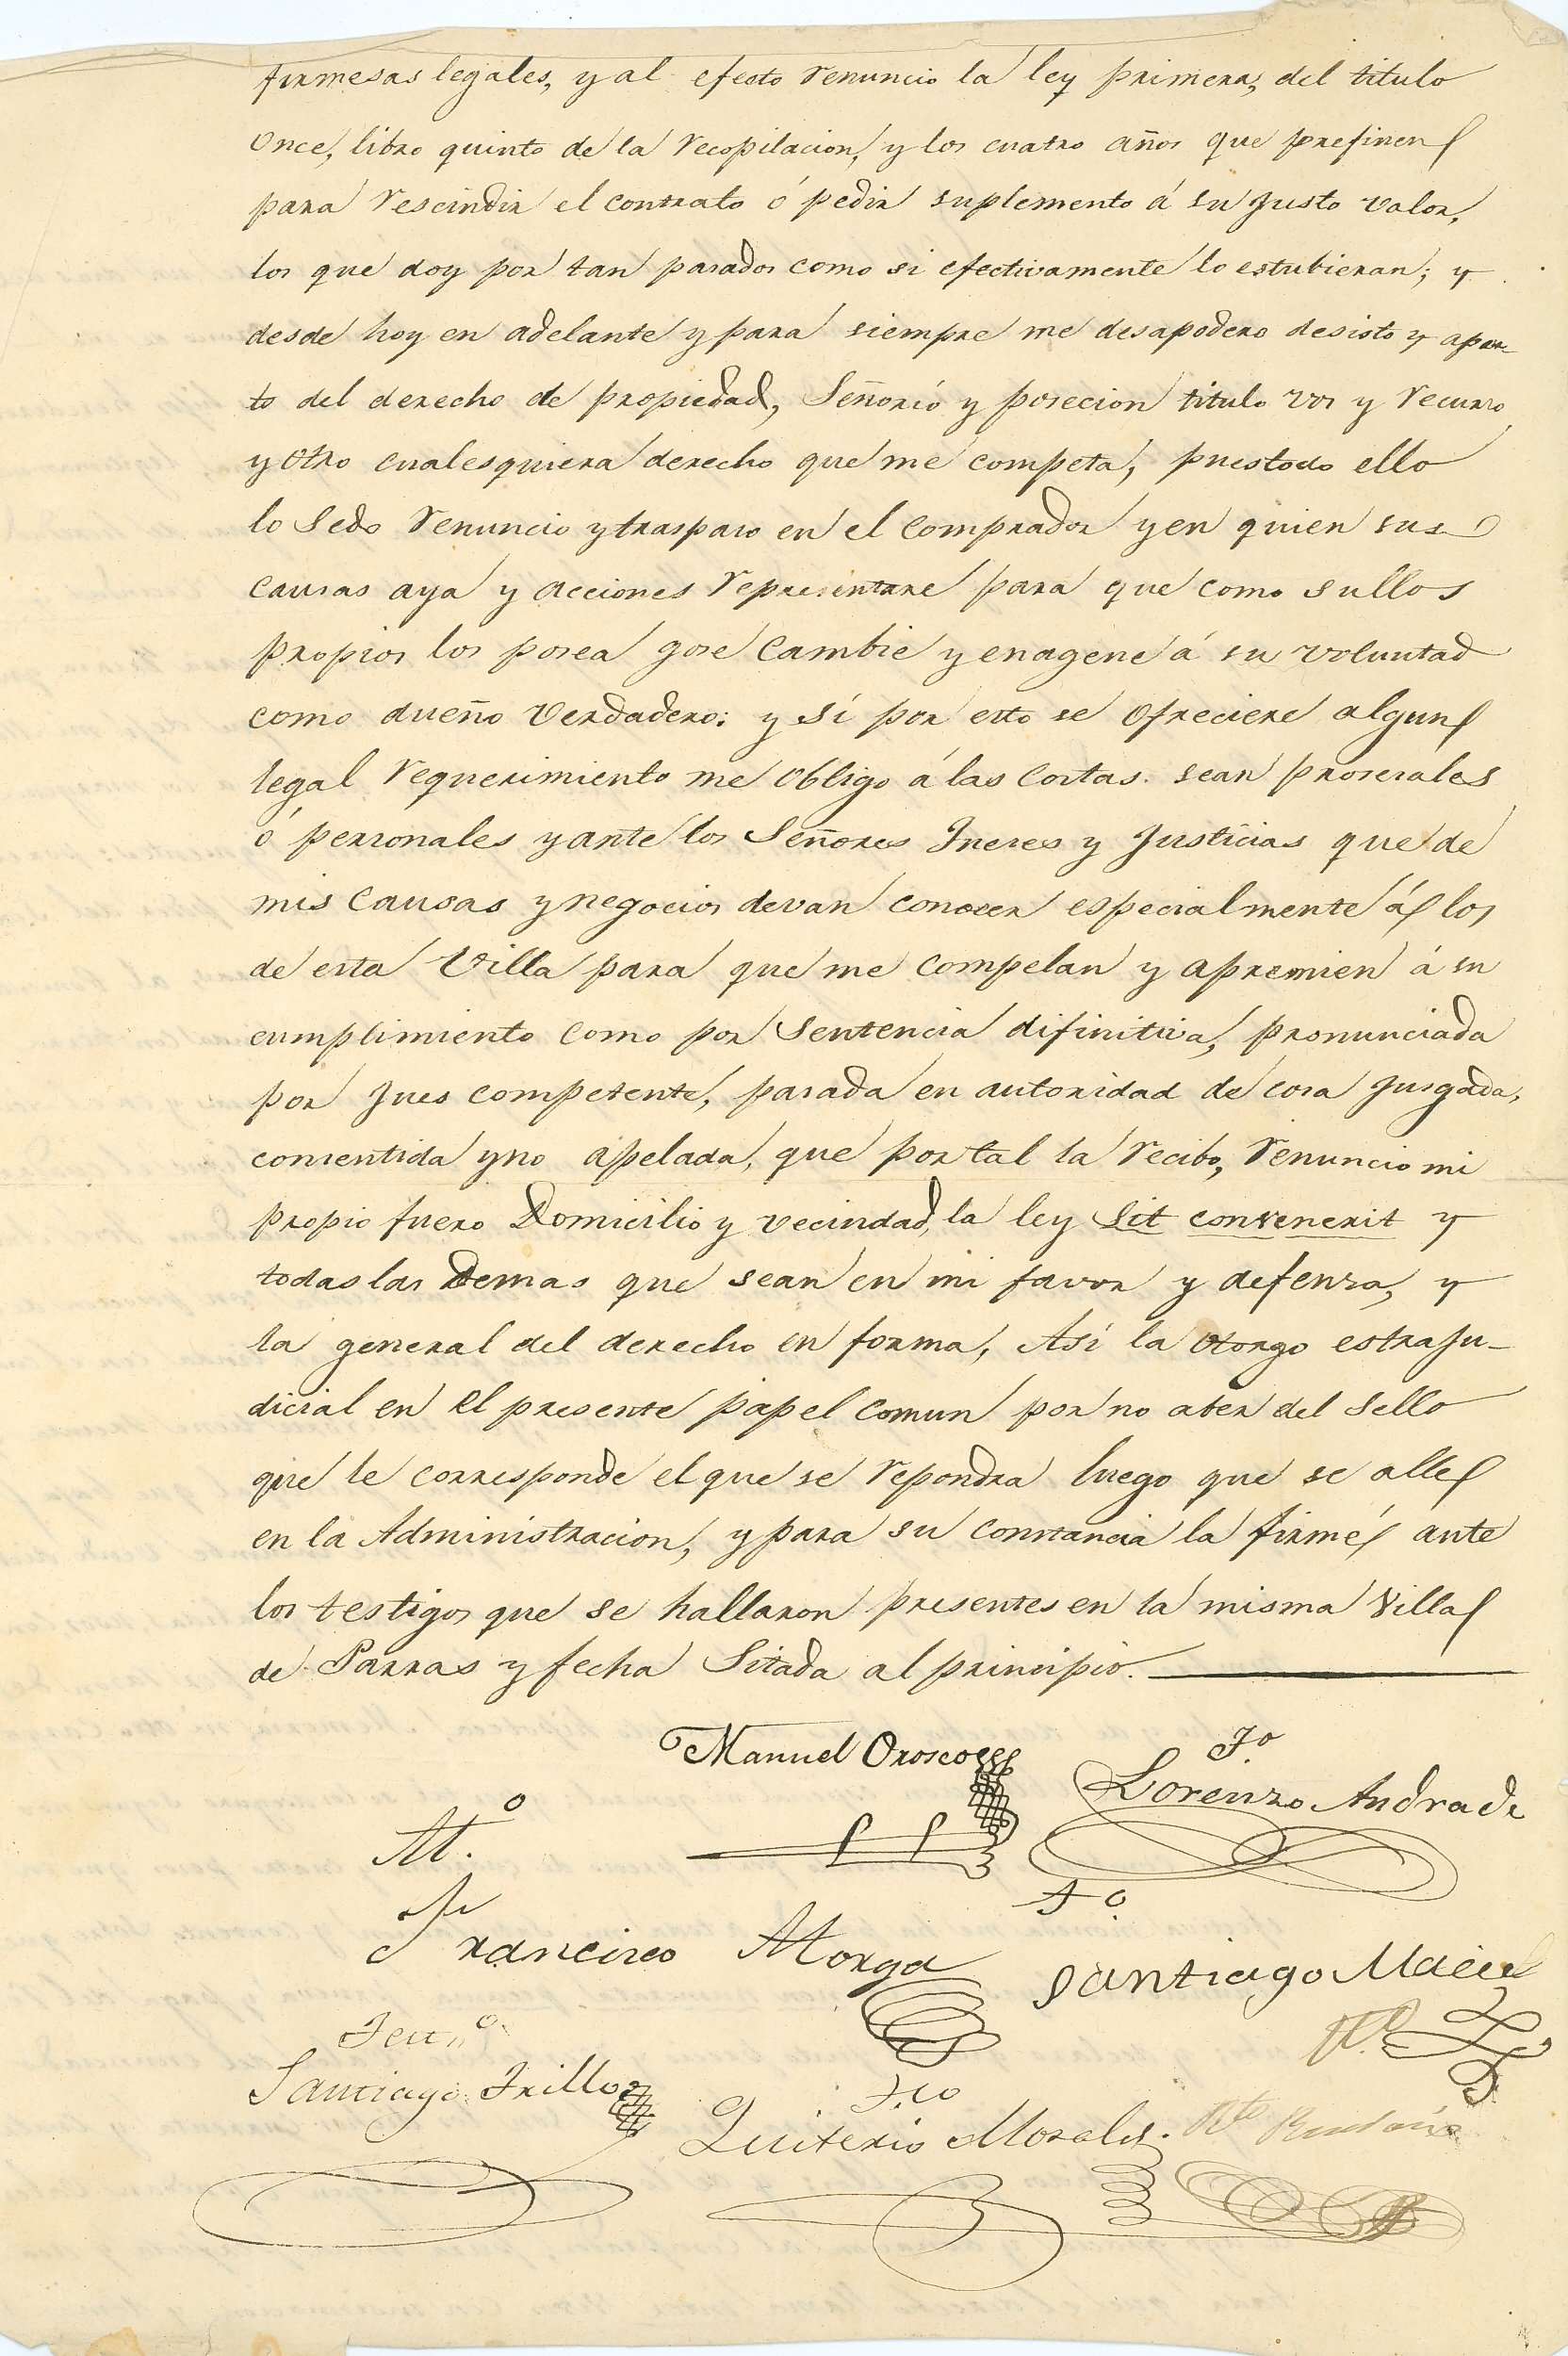 firmesas legales, y al efecto renuncio la ley primera, del titulo
Once, libro quinto de la recopilacion, y los cuatro años que prefinen
para rescindir el contrato ó pedir suplemento á su justo valor,
los que doy por tan pasados como si efectivamente lo estubieran; y
desde hoy en adelante y para siempre me desapodero desisto y apar-
to del derecho de propiedad, Señorió y posecion titulo vos y recurso
y otro cualesquiera derecho que me competa, pues todo ello
lo Sedo renuncio y traspaso en el comprador y en quien sus
causas aya y acciones representare para que como sullos
propios los posea gose cambie y enagene á su voluntad
como dueño verdadero: y sí por esto se ofreciere algun
legal requerimiento me obligo á las costas. sean prosesales
ó personales y ante los Señores Jueces y Justicias que de
mis causas y negocios devan conocer especialmente á los
de esta Villa para que me compelan y apremien á su
cumplimiento como por Sentencia difinitiva, pronunciada
por Jues competente, pasada en autoridad de cosa Jusgada,
consentida y no apelada, que por tal la recibo, renuncio mi
propio fuero Domicilio y vecindad, la ley Sit convenerit y
todas las Demas que sean en mi favor y defensa, y
la general del derecho en forma, Así la otorgo estraju-
dicial en el presente papel comun por no aber del Sello
que le corresponde el que se repondra luego que se alle
en la Administracion, y para su constancia la firmé ante
los testigos que se hallaron presentes en la misma Villa
de Parras y fecha Sitada al principio.
Manuel Orosco
T.o
Lorenzo Andrade
At.o
Francisco Morga
T.o
Santiago Maciel
Test.o
Santiago Trillo
T.go
Quiterio Morales.